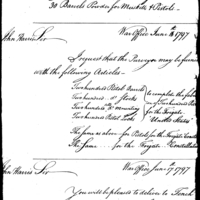 30 Barrels Powder for Muskets & Pistols.
John Harris Sir War Office June 16 1797
I request that the Purveyor may be furnished
with the following Articles.
Two hundred Pistol Barrels
Two hundred " Stocks
Two hundred setts " mounting
Two hundred Pistol Locks
to complete the
Two hundred Pistols
for the Frigate
United States
The same as above for Pistols for the Frigate
The same for the Frigate Constellation
John Harris Sir War Office June 17 1797
You will be pleased to deliver to Tench